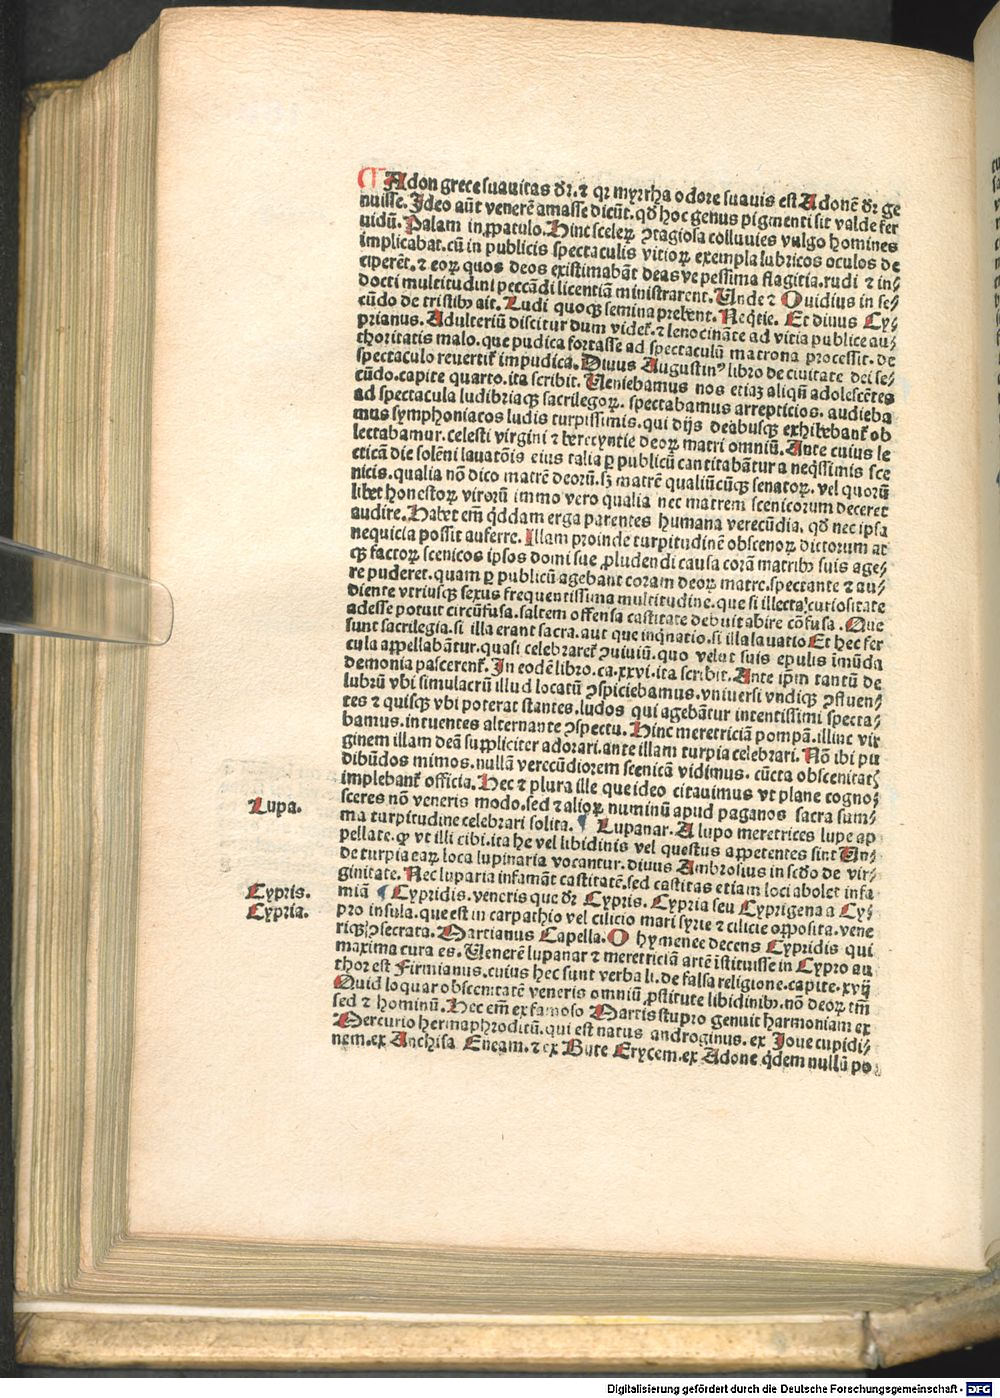 ¶ Adon grece suauitas dr̄. ⁊ qr myrrha odore suauis est Adonē dr̄ ge
nuisse. Ideo aūt venerē amasse dicūt. qđ hoc genus pigmenti sit valde fer
uidū. Palam in ꝓpatulo. Hinc sceleꝝ ꝯtagiosa colluuies vulgo homines
implicabat. cū in publicis spectaculis vitioꝝ exempla lubricos oculos de
ciperēt. ⁊ eoꝝ quos deos existimabāt deasve pessima flagitia. rudi ⁊ in⸗
docti multitudini peccādi licentiā ministrarent. Unde ⁊ Ouidius in se⸗
cūdo de tristibꝫ ait. Ludi quoqꝫ semina prebent. Neq̄tie. Et diuus Cy⸗
prianus. Adulteriū discitur dum videt̄. ⁊ lenocināte ad vitia publice au⸗
thoritatis malo. que pudica fortasse ad spectaculū matrona processit. de
spectaculo reuertit̄ impudica. Diuus Augustinꝰ libro de ciuitate dei se⸗
cūdo. capite quarto. ita scribit. Ueniebamus nos etiaꝫ aliqn̄ adolescētes
ad spectacula ludibriaqꝫ sacrilegoꝝ. spectabamus arrepticios. audieba
mus symphoniacos ludis turpissimis. qui dijs deabusqꝫ exhibebant̄ ob
lectabamur. celesti virgini ⁊ berecyntie deoꝝ matri omniū. Ante cuius le
cticā die solēni lauatōis eius talia ꝑ publicū cantitabātur a neq̄ssimis sce
nicis. qualia nō dico matrē deorū. sꝫ matrē qualiūcūqꝫ senatoꝝ. vel quorū
libet honestoꝝ virorū immo vero qualia nec matrem scenicorum deceret
audire. Habet em̄ q̄ddam erga parentes humana verecūdia. qđ nec ipsa
nequicia possit auferre. Illam proinde turpitudinē obscenoꝝ dictorum at
qꝫ factoꝝ scenicos ipsos domi sue ꝓludendi causa corā matribꝫ suis age⸗
re puderet. quam ꝑ publicū agebant coram deoꝝ matre. spectante ⁊ au⸗
diente vtriusqꝫ sexus frequentissima multitudine. que si illecta curiositate
adesse potuit circūfusa. saltem offensa castitate debuit abire cōfusa. Que
sunt sacrilegia. si illa erant sacra. aut que inq̄natio. si illa lauatio Et hec fer
cula appellabātur. quasi celebraret̄ ꝯuiuiū. quo velut suis epulis īmūda
demonia pascerent̄. In eodē libro. ca. xxvi. ita scribit. Ante ip̄m tantū de
lubrū vbi simulacrū illud locatū ꝯspiciebamus. vniuersi vndiqꝫ ꝯfluen⸗
tes ⁊ quisqꝫ vbi poterat stantes. ludos qui agebātur intentissimi specta⸗
bamus. intuentes alternante ꝯspectu. Hinc meretriciā pompā. illinc vir
ginem illam deā suppliciter adorari. ante illam turpia celebrari. Nō ibi pu
dibūdos mimos. nullā verecūdiorem scenicā vidimus. cūcta obscenitatꝭ
implebant̄ officia. Hec ⁊ plura ille que ideo citauimus vt plane cogno⸗
sceres nō veneris modo. sed ⁊ alioꝝ numinū apud paganos sacra sum⸗
Lupa.
ma turpitudine celebrari solita. ¶ Lupanar. A lupo meretrices lupe ap
pellate. ꝙ vt illi cibi. ita he vel libidinis vel questus appetentes sint Un⸗
de turpia eaꝝ loca lupinaria vocantur. diuus Ambrosius in scđo de vir⸗
ginitate. Nec luparia infamāt castitatē. sed castitas etiam loci abolet infa
Cypris.
miā ¶ Cypridis. veneris que dr̄ Cypris. Cypria seu Cyprigena a Cy⸗
Cypria.
pro insula. que est in carpathio vel cilicio mari syrie ⁊ cilicie opposita. vene
riqꝫ ꝯsecrata. Martianus Capella. O hymenee decens Cypridis qui
maxima cura es. Venerē lupanar ⁊ meretriciā artē īstituisse in Cypro au
thor est Firmianus. cuius hec sunt verba li. de falsa religione. capite. xvij
Quid loquar obscenitatē veneris omniū ꝓstitute libidinibꝫ. nō deoꝝ tm̄
sed ⁊ hominū. Hec em̄ ex famoso Martis stupro genuit harmoniam ex
Mercurio hermaphroditū. qui est natus androginus. ex Ioue cupidi⸗
nem. ex Anchisa Eneam. ⁊ ex Bute Erycem. ex Adone q̄dem nullū po⸗
Digitalisierung gefördert durch die Deutsche Forschungsgemeinschaft - DFG